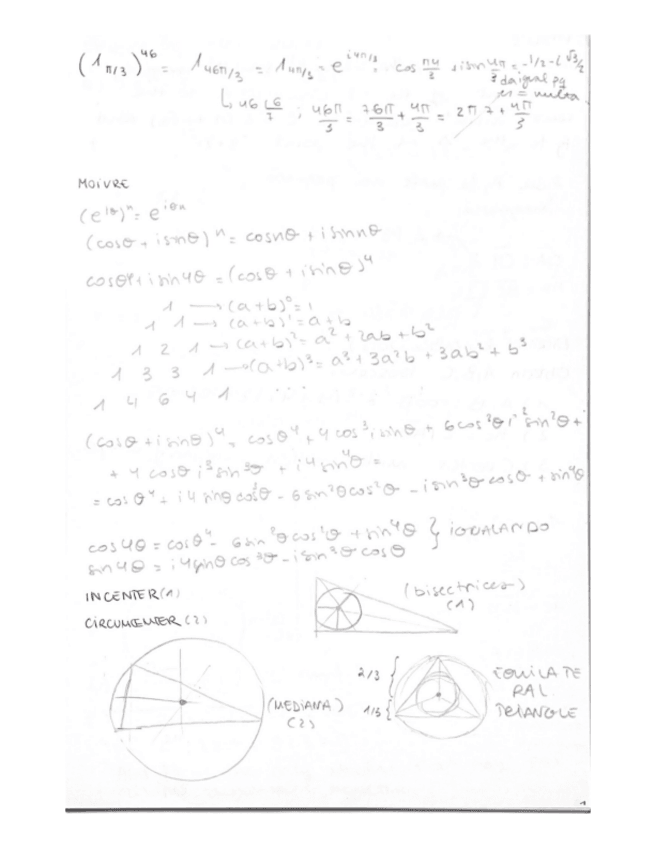 (1 π/3)^46 = 1 46π/3 = 1 4π/3 = e^i4π/3 ; cos π4/3 + i sin 4π/3 = -1/2 - i √3/2
da igual pq
es = vuelta
↳ 46 |6 7 ; 46π/3 = 76π/3 + 4π/3 = 2π 7 + 4π/3
MOIVRE
(e^iθ)^n = e^iθn
(cosθ + i sinθ)^n = cos nθ + i sin nθ
cosθ^4 + i sin 4θ = (cosθ + i sinθ)^4
1 → (a+b)^0 = 1
1 1 → (a+b)^1 = a+b
1 2 1 → (a+b)^2 = a^2 + 2ab + b^2
1 3 3 1 → (a+b)^3 = a^3 + 3a^2b + 3ab^2 + b^3
1 4 6 4 1 ...
(cosθ + i sinθ)^4 = cosθ^4 + 4 cos^3 i sinθ + 6 cos^2θ i^2 sin^2θ +
+ 4 cosθ i^3 sin^3θ + i^4 sin^4θ =
= cosθ^4 + i4 sinθ cos^3θ - 6 sin^2θ cos^2θ - i sin^3θ cosθ + sin^4θ
cos 4θ = cosθ^4 - 6 sin^2θ cos^2θ + sin^4θ } IGUALANDO
sin 4θ = i4 sinθ cos^3θ - i sin^3θ cosθ
INCENTER (1)
(bisectrices)
(1)
CIRCUMCENTER (2)
(MEDIANA)
(2)
2/3 {
1/3 {
EQUILATE
RAL
TRIANGLE
1